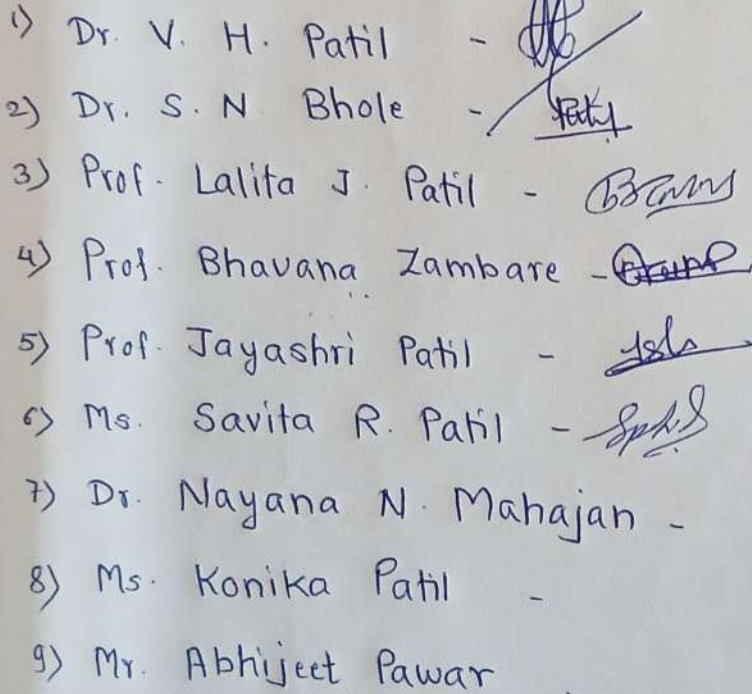 1) Dr. V. H. Patil -
2) Dr. S. N Bhole -
3) Prof. Lalita J. Patil -
4) Prof. Bhavana Zambare -
5) Prof. Jayashri Patil -
6) Ms. Savita R. Patil -
7) Dr. Nayana N. Mahajan -
8) Ms. Konika Patil -
9) Mr. Abhijeet Pawar